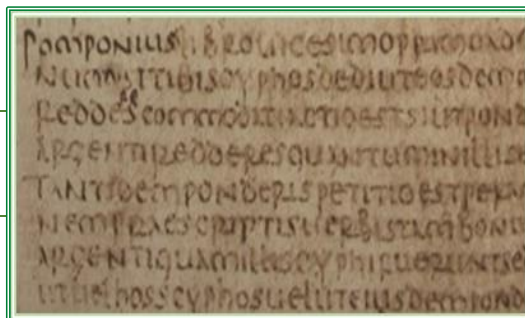 POMPONIUS LIBROUICESIMOPRIMOAD
NUMSITTIBISCYPHOSDEDIUTEOSDEM
REDDESCOMMODATIACTIOESTSIUTPOND
ARGENTIREDDERESQUANTUMINILLIS
TANTSDEMPONDERISPETITIOESTPER
NEMPRAESCRIPTISUERBISTAMBONI
ARGENTIQUAMILLISCYPHIFUERUNTSE
UTUELHOSSCYPHOSUELUTEIUSDEMPOND